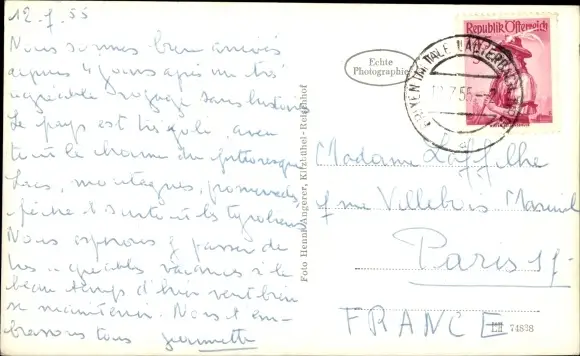 12.7.55
Nous sommes bien arrivés
depuis 4 jours après un très
agréable voyage sans histoire
Le pays est très joli, avec
tout le charme du pittoresque
Lacs, montagnes, promenades,
pêche & surtout les tyroliens
Nous espérons y passer de
très agréables vacances si le
beau temps d'hier veut bien
se maintenir. Nous t' em-
brassons tous
Echte
Photographie
Foto Henni Angerer, Kitzbühel-Reischhof
Republik Österreich
Madame
rue Villebois Mareuil
Paris 17
FRANCE
74838